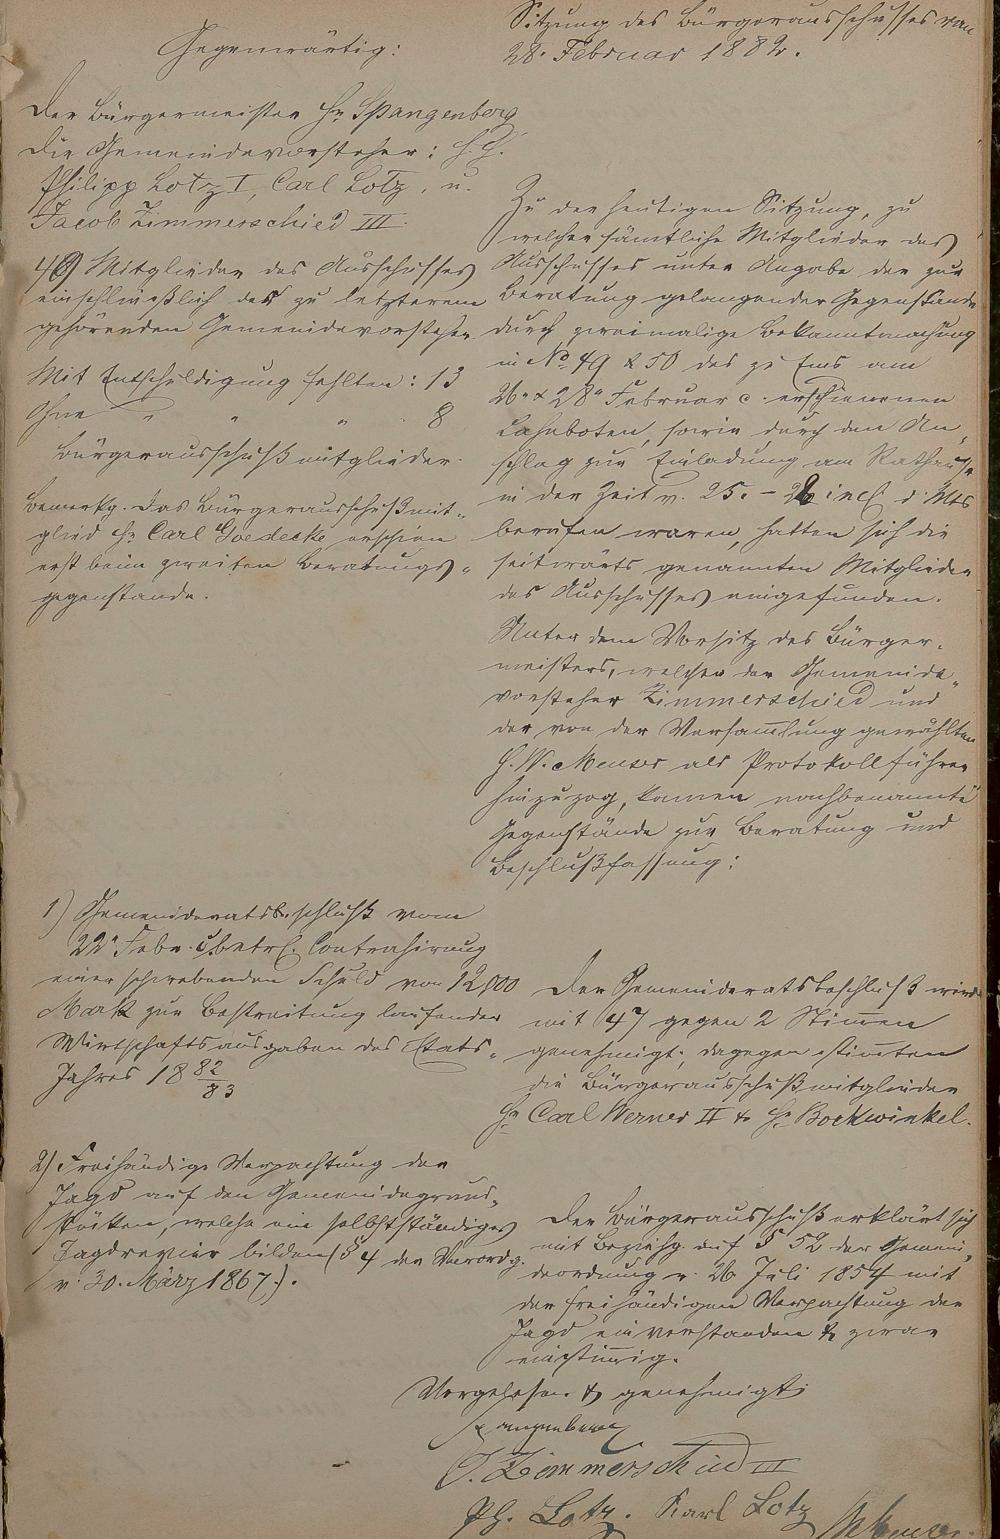 Gegenwärtig:
Der Bürgermeister Hr Spangenberg
Die Gemeindevorsteher: H.H.
Philipp Lotz I, Carl Lotz, u.
Jacob Zimmerschied III.
49 Mitglieder des Ausschusses
einschließlich des zu letzterem
gehörenden Gemeindevorsteher
Mit Entschuldigung fehlten: 13
Ohne " " " 8
Bürgerausschußmitglieder.
Bemerkg. Das Bürgerausschußmit-
glied Hr Carl Goedecke erschien
erst beim zweiten Beratungs-
gegenstande.
Sitzung des Bürgerausschusses vom
28. Februar 1882.
Zu der heutigen Sitzung, zu
welcher sämtliche Mitglieder des
Ausschusses unter Angabe der zur
Beratung gelangender Gegenstände
durch zweimalige Bekanntmachung
in No 49 & 50 des zu Ems am
26. & 28. Februar c. erschienenen
Lahnboten, sowie durch den An-
schlag zur Einladung am Rathause
in der Zeit v. 25. - 28 incl d. Mts
berufen waren, hatten sich die
seitwärts genannten Mitglieder
des Ausschusses eingefunden.
Unter dem Vorsitz des Bürger-
meisters, welcher den Gemeinde-
vorsteher Zimmerschied und
der von der Versamlung gewählten
H. W. Menser als Protokollführer
hinzuzog, kamen nachbenannte
Gegenstände zur Beratung und
Beschlußfassung:
1) Gemeinderatsbeschluß vom
22. Febr. c. betref. Contrahirung
einer schwebenden Schuld von 12,000
Mark zur Bestreitung laufender
Wirtschaftsausgaben des Etats-
Jahres 1882/83
Der Gemeinderatsbeschluß wird
mit 47 gegen 2 Stimen
genehmigt; dagegen stimten
die Bürgerausschußmitglieder
Hr Carl Werner II & Hr Bockwinkel.
2) Freihändige Verpachtung der
Jagd auf den Gemeindegrund-
stücken, welche ein selbstständiges
Jagdrevier bilden (§ 4 der Verordg.
v. 30. März 1867.).
Der Bürgerausschuß erklärt sich
mit Beziehg. auf § 52 der Gemein-
deordnung v. 26 Juli 1854 mit
der freihändigen Verpachtung der
Jagd einverstanden & zwar
einstimig.
Vorgelesen & genehmigt:
Spangenberg
J. Zimmerschied III
Ph. Lotz. Karl Lotz